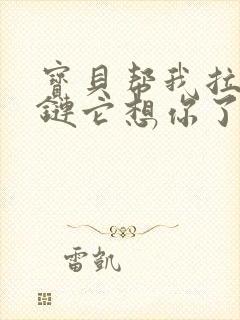 寶貝帮我拉
鏈它想你了
雷凯